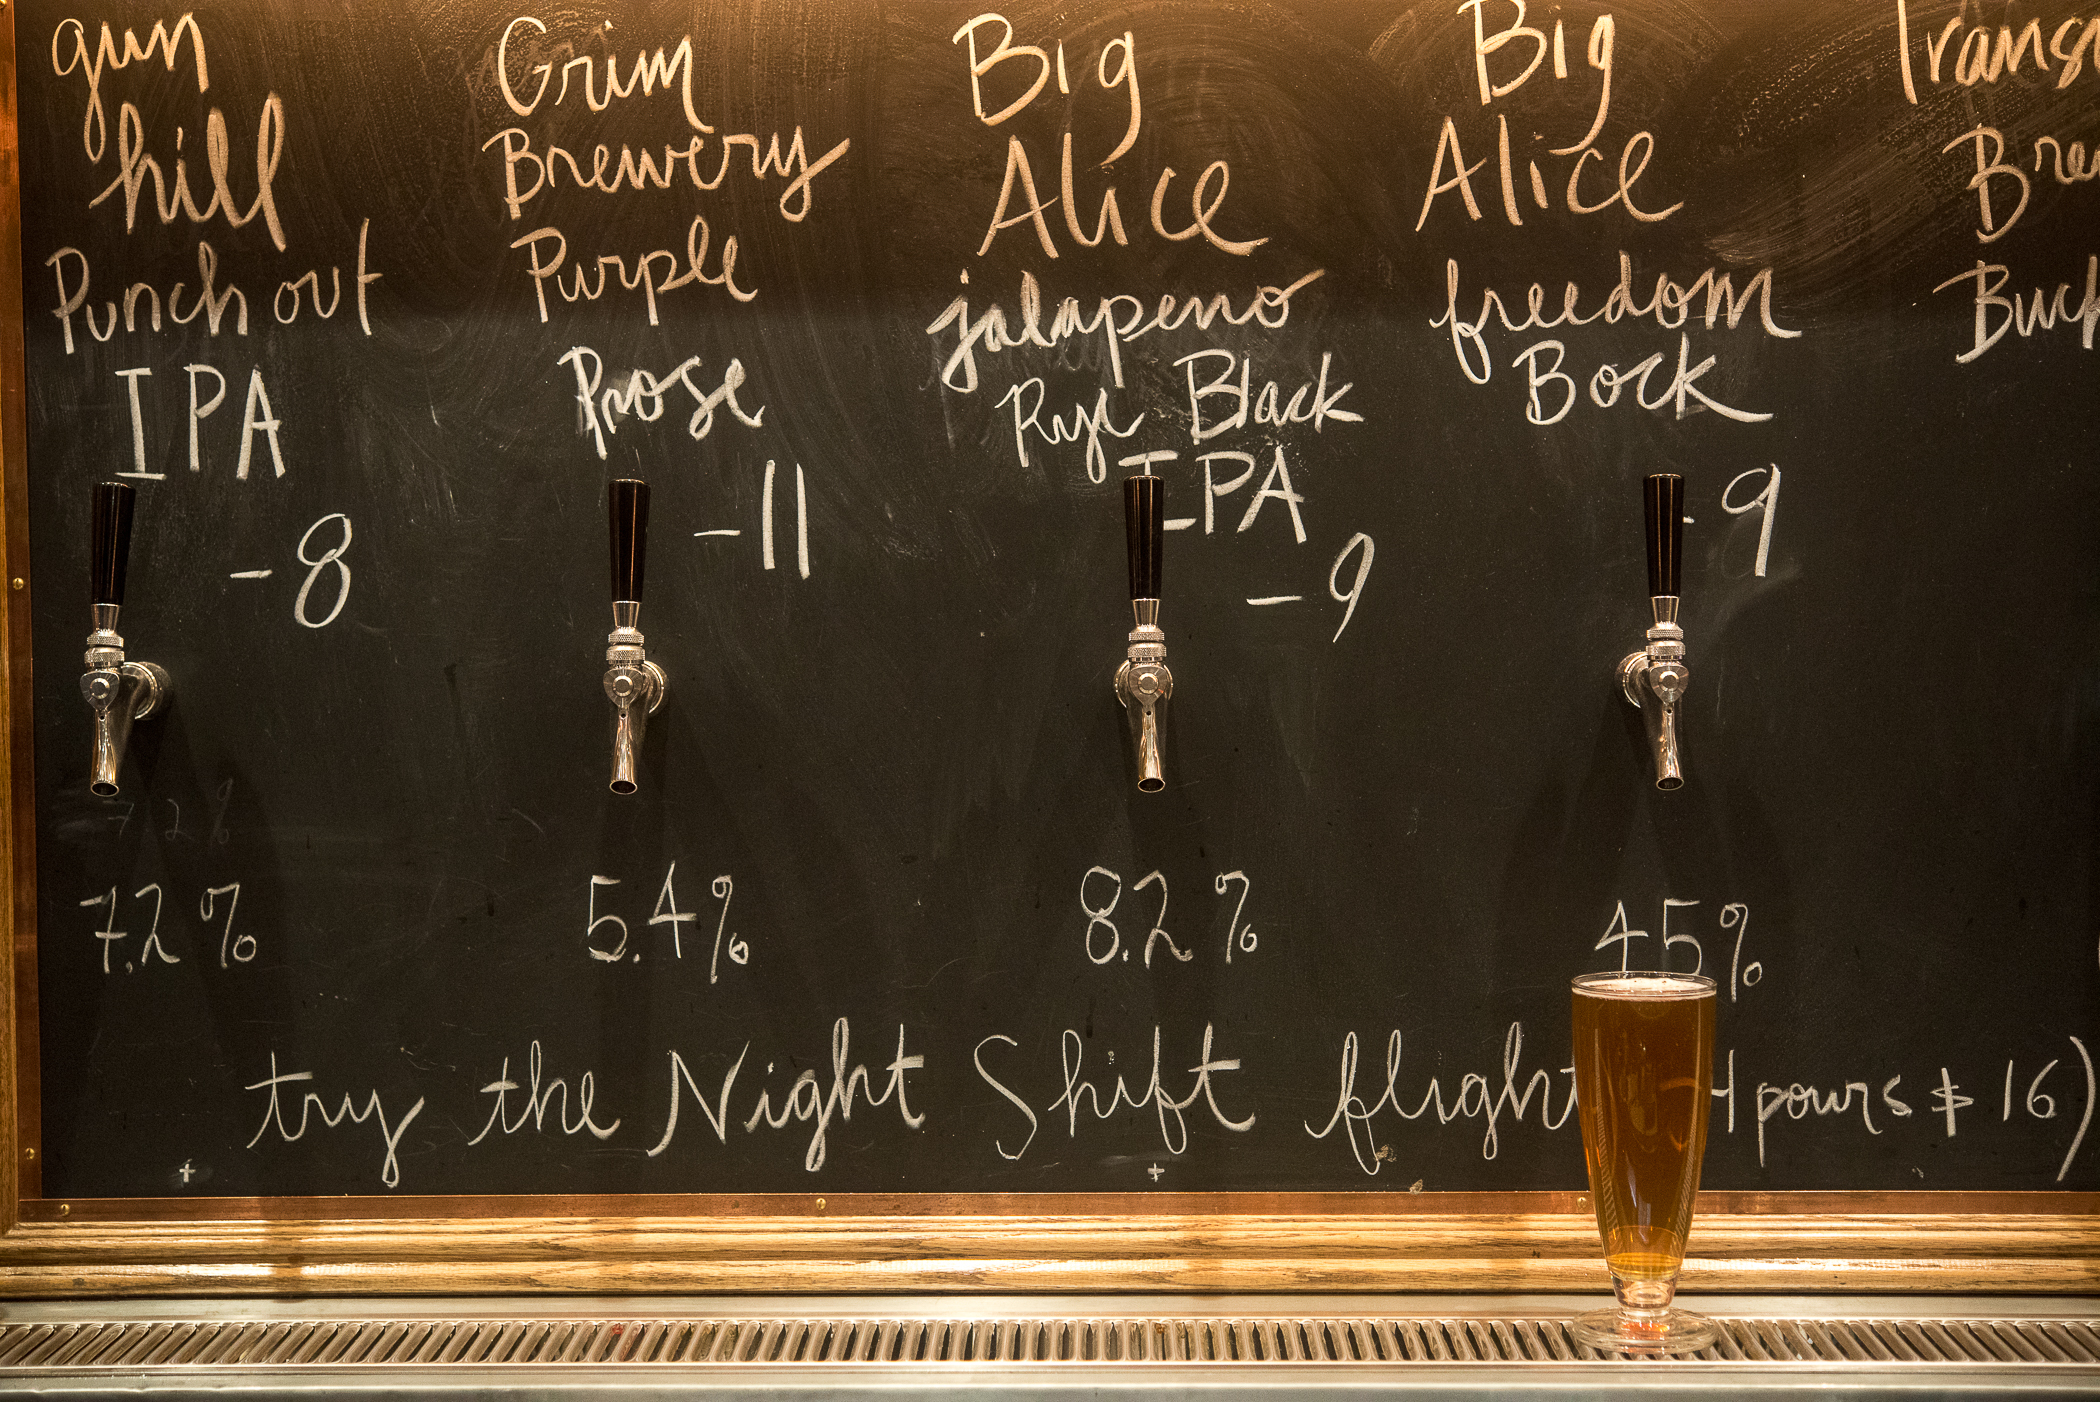 gun
hill
Punch out
IPA
-8
7.2%
7.2%
Grim
Brewery
Purple
Prose
-11
5.4%
Big
Alice
jalapeno
Rye Black
IPA
-9
8.2%
Big
Alice
freedom
Bock
-9
45%
Trans
Bre
Buck
try the Night Shift flight 4 pours $16)